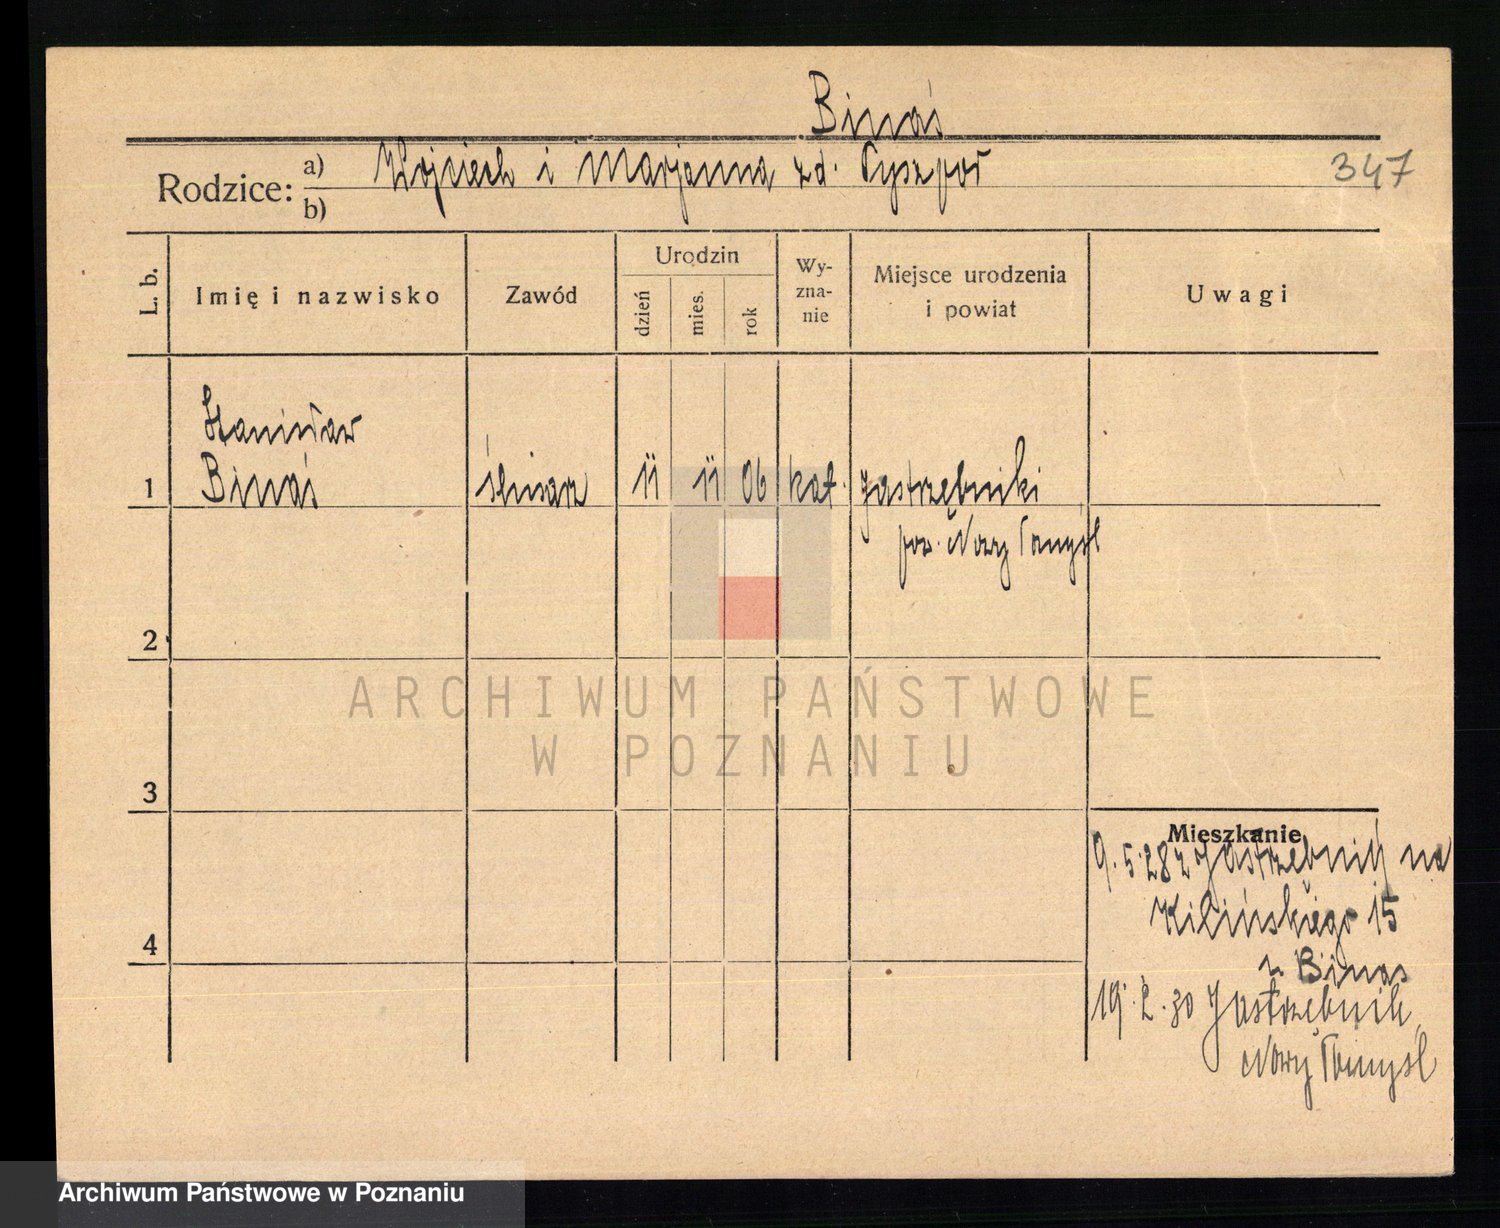 Binaś
Rodzice: a) Wojciech i Marjanna zd.
b)
347
L. b.
Imię i nazwisko
Zawód
Urodzin
dzień
mies.
rok
Wy-
zna-
nie
Miejsce urodzenia
i powiat
Uwagi
Stanisław
1 Binaś ślusarz 11 11 06 kat. Jastrzębniki
pow. Nowy Tomyśl
2
3
4
Mieszkanie
9.5.28 z Jastrzębnik na
Kilińskiego 15
u Binas
19.2.30 Jastrzębnik,
Nowy Tomyśl
ARCHIWUM PAŃSTWOWE
W POZNANIU
Archiwum Państwowe w Poznaniu